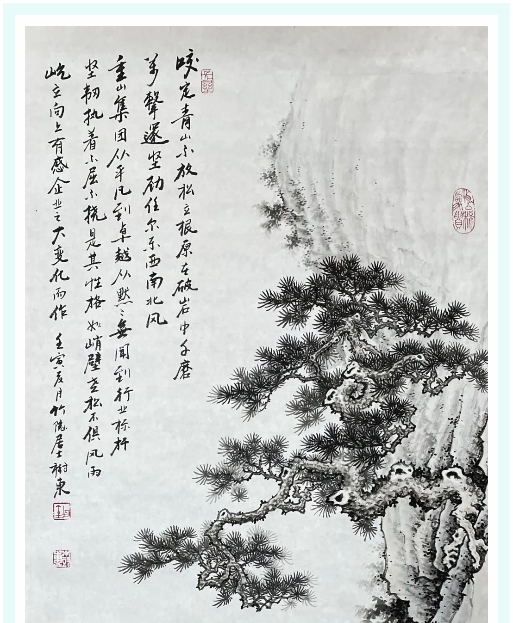 咬定青山不放松立根原在破岩中千磨
万聲還坚劲任尔东西南北风
重山集团从平凡到卓越从默〻无闻到行业标杆
坚韧执着不屈不挠是其性格如峭壁苍松不惧风雨
屹立向上有感企业之大变化而作 壬寅夏月竹隐居士树东